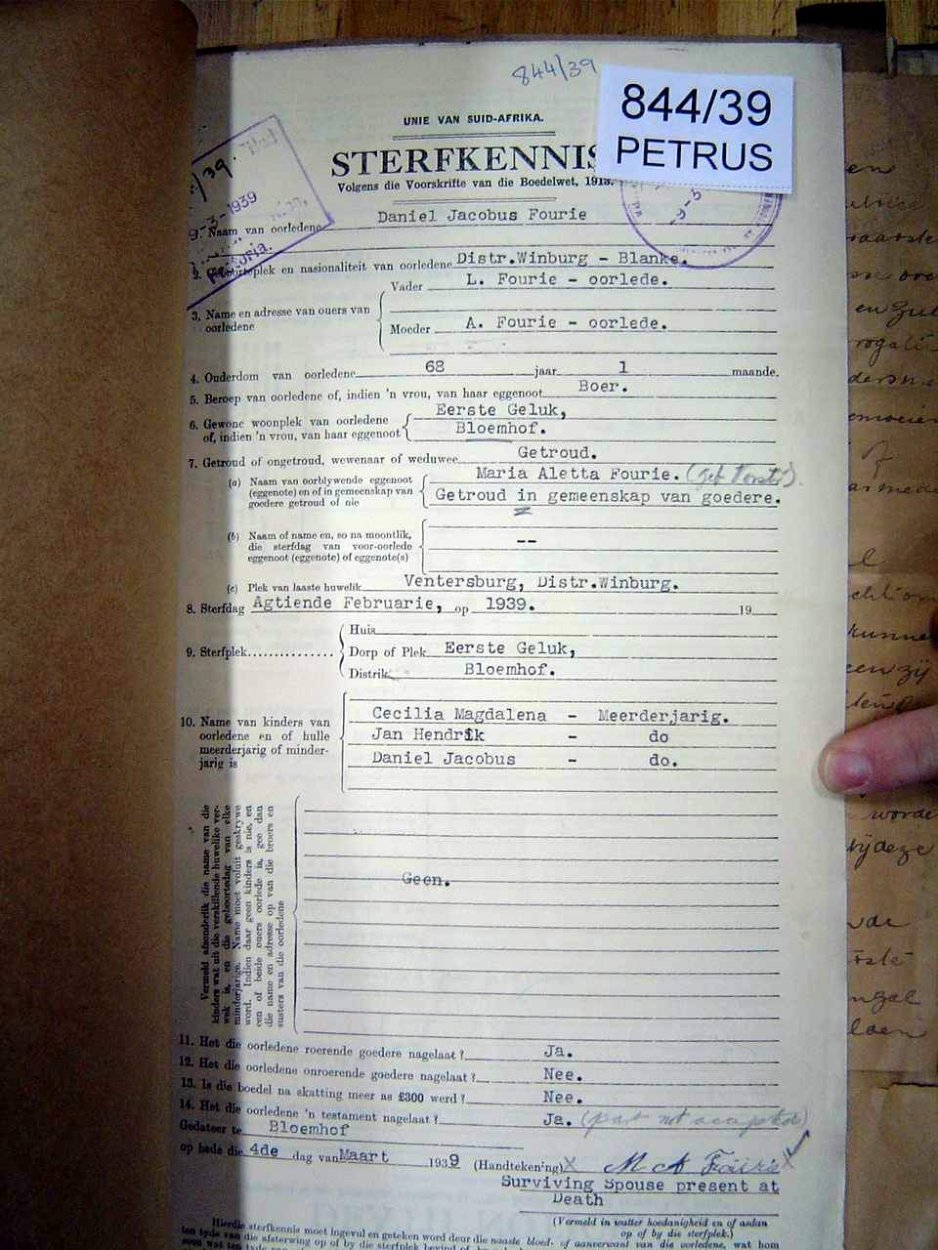 844/39
844/39
PETRUS
UNIE VAN SUID-AFRIKA.
STERFKENNIS
Volgens die Voorskrifte van die Boedelwet, 1913.
9-3-1939
Naam van oorledene Daniel Jacobus Fourie
2. Geboorteplek en nasionaliteit van oorledene Distr.Winburg - Blanke.
3. Name en adresse van ouers van oorledene
Vader L. Fourie - oorlede.
Moeder A. Fourie - oorlede.
4. Ouderdom van oorledene 68 jaar 1 maande.
5. Beroep van oorledene of, indien 'n vrou, van haar eggenoot Boer.
6. Gewone woonplek van oorledene of, indien 'n vrou, van haar eggenoot
Eerste Geluk,
Bloemhof.
7. Getroud of ongetroud, wewenaar of weduwee Getroud.
(a) Naam van oorblywende eggenoot (eggenote) en of in gemeenskap van goedere getroud of nie
Maria Aletta Fourie.
Getroud in gemeenskap van goedere.
(b) Naam of name en, so na moontlik, die sterfdag van voor-oorlede eggenoot (eggenote) of eggenote(s)
--
(c) Plek van laaste huwelik Ventersburg, Distr.Winburg.
8. Sterfdag Agtiende Februarie, op 1939. 19
9. Sterfplek
Huis
Dorp of Plek Eerste Geluk,
Distrik Bloemhof.
10. Name van kinders van oorledene en of hulle meerderjarig of minderjarig is
Cecilia Magdalena - Meerderjarig.
Jan Hendrik - do
Daniel Jacobus - do.
Vermeld afsonderlik die name van die
kinders wat uit die verskillende huwelike verwek
is, en die geboortedag van elke
minderjarige. Name moet voluit geskrywe
word. Indien daar geen kinders is nie, en
een of beide ouers oorlede is, gee dan
die name en adresse op van die broers en
susters van die oorledene
Geen.
11. Het die oorledene roerende goedere nagelaat? Ja.
12. Het die oorledene onroerende goedere nagelaat? Nee.
13. Is die boedel na skatting meer as £300 werd? Nee.
14. Het die oorledene 'n testament nagelaat? Ja.
Gedateer te Bloemhof
op hede die 4de dag van Maart 1939 (Handtekening) X M A Fourie X
Surviving Spouse present at
Death
(Vermeld in watter hoedanigheid en of aldan
op of by die sterfplek.)
Hierdie sterfkennis moet ingevul en geteken word deur die naaste bloed- of aanverwant van die oorledene, wat hom